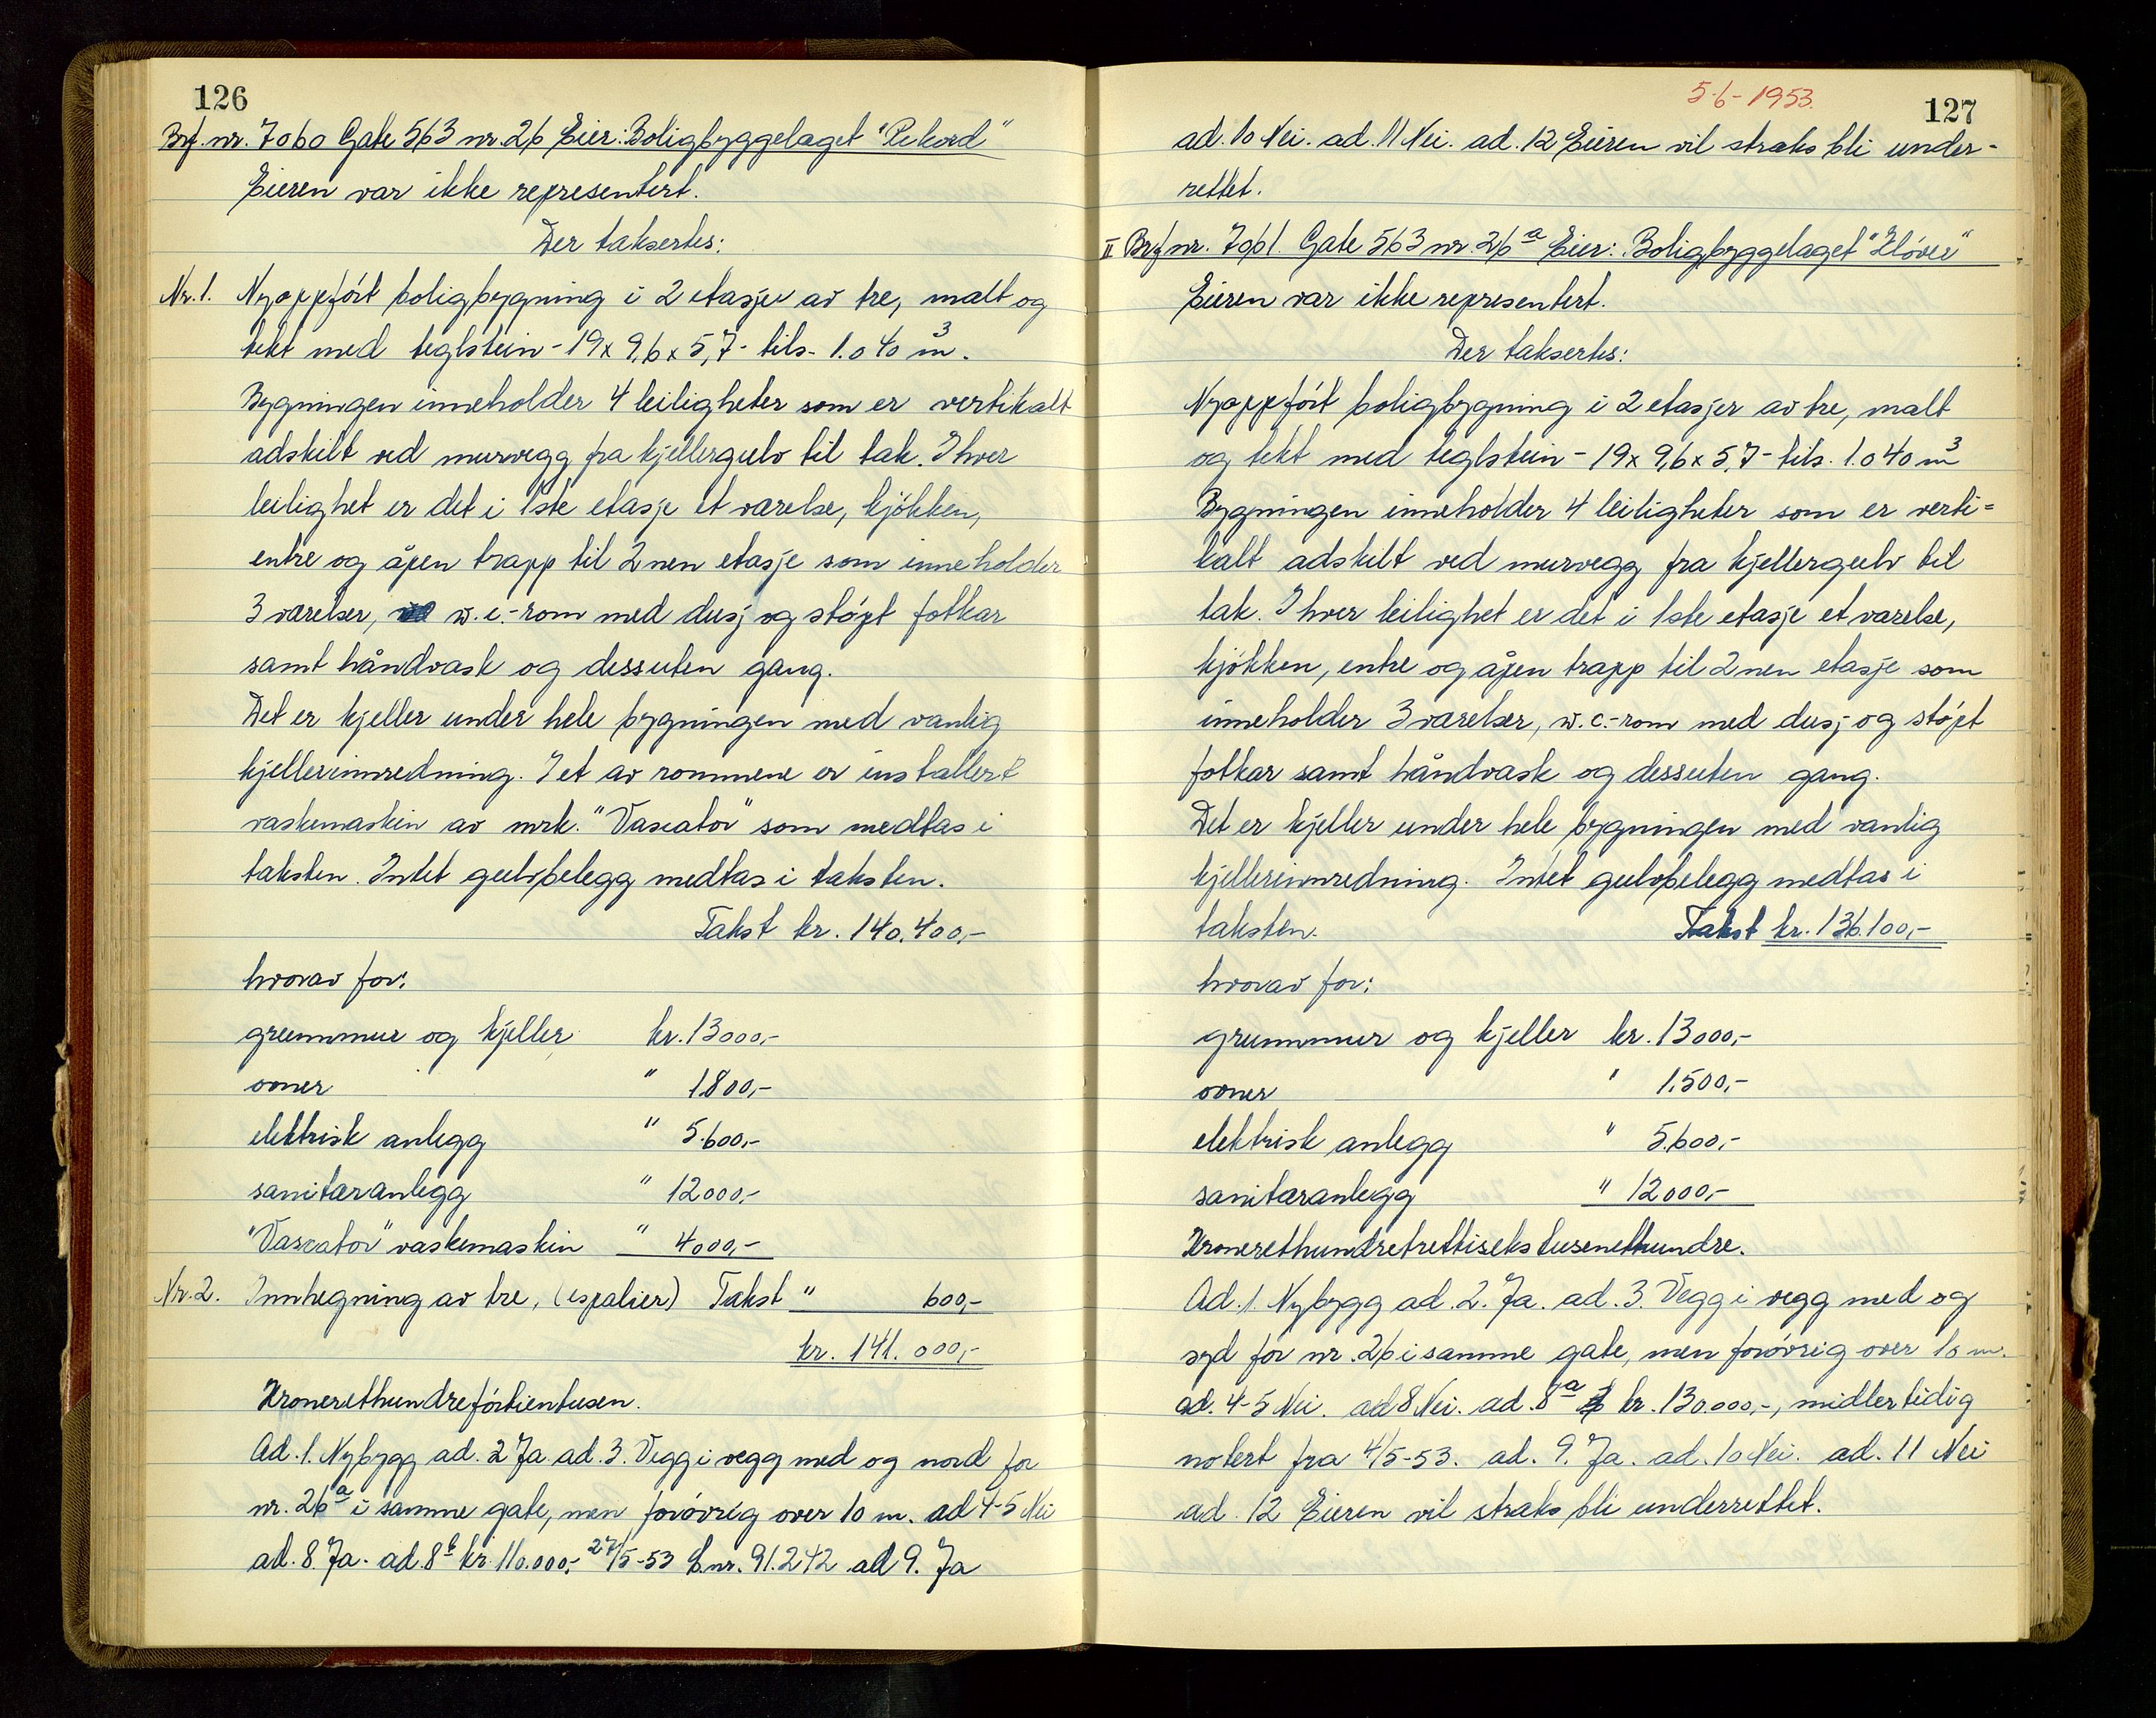 126
Brf. nr. 7060 Gate 563 nr. 26 Eier: Boligbyggelaget "Rekord"
Eieren var ikke representert.
Der taksertes:
Nr. 1. Nyoppført boligbygning i 2 etasjer av tre, malt og
tekt med teglstein - 19 x 9,6 x 5,7 - tils. 1.040 m³.
Bygningen inneholder 4 leiligheter som er vertikalt
adskilt ved murvegg fra kjellergulv til tak. I hver
leilighet er det i 1ste etasje et værelse, kjøkken,
entre og åpen trapp til 2nen etasje som inneholder
3 værelser, w.c.-rom med dusj og støpt fotkar
samt håndvask og dessuten gang.
Det er kjeller under hele bygningen med vanlig
kjellerinnredning. I et av rommene er installert
vaskemaskin av mrk. "Vascator" som medtas i
taksten. Intet gulvbelegg medtas i taksten.
Takst kr. 140.400,-
hvorav for:
grunnmur og kjeller kr. 13000,-
ovner " 1.800,-
elektrisk anlegg " 5.600,-
sanitæranlegg " 12000,-
"Vascator" vaskemaskin " 4000,-
Nr. 2. Innhegning av tre, (espalier) Takst " 600,-
kr. 141.000,-
Kronerethundreførtientusen.
Ad. 1. Nybygg ad. 2 Ja ad. 3. Vegg i vegg med og nord for
nr. 26a i samme gate, men forøvrig over 10 m. ad 4-5 Nei
ad. 8. Ja. ad. 8b kr. 110.000,- 27/5-53 L.nr. 91.242 ad 9. Ja
5-6-1953.
127
ad. 10 Nei. ad. 11 Nei. ad. 12 Eieren vil straks bli under-
rettet.
II Brf nr. 7061. Gate 563 nr. 26a Eier: Boligbyggelaget "Kløver"
Eieren var ikke representert.
Der taksertes:
Nyoppført boligbygning i 2 etasjer av tre, malt
og tekt med teglstein - 19 x 9,6 x 5,7 - tils. 1.040 m³
Bygningen inneholder 4 leiligheter som er verti=
kalt adskilt ved murvegg fra kjellergulv til
tak. I hver leilighet er det i 1ste etasje et værelse,
kjøkken, entre og åpen trapp til 2nen etasje som
inneholder 3 værelser, w.c.-rom med dusj og støpt
fotkar samt håndvask og dessuten gang.
Det er kjeller under hele bygningen med vanlig
kjellerinnredning. Intet gulvbelegg medtas i
taksten. Takst kr. 136.100,-
hvorav for:
grunnmur og kjeller kr. 13000,-
ovner " 1.500,-
elektrisk anlegg " 5.600,-
sanitæranlegg " 12000,-
Kronerethundretrettisekstusenethundre.
Ad. 1. Nybygg ad. 2. Ja. ad. 3. Vegg i vegg med og
syd for nr. 26 i samme gate, men forøvrig over 10 m.
ad. 4-5 Nei. ad 8 Nei. ad. 8a kr. 130.000,-, midlertidig
notert fra 4/5-53. ad. 9. Ja. ad. 10 Nei. ad. 11 Nei
ad. 12 Eieren vil straks bli underrettet.